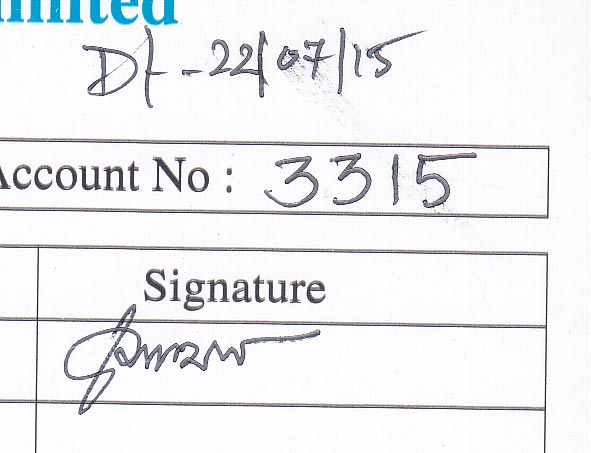 imited
Dt - 22/07/15
Account No : 3315
Signature